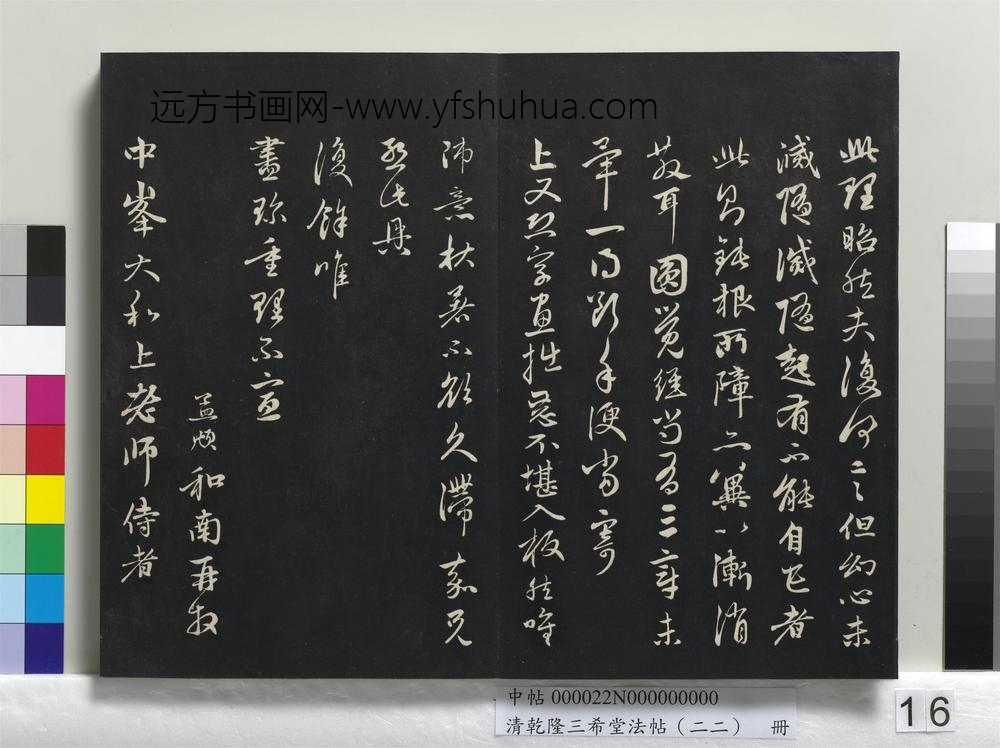 远方书画网-www.yfshuhua.com
此理昭然夫復何言但幻心未
滅隨滅隨起有不能自已者
此則鈍根所障亦冀以漸消
散耳圓覺經尚有三章未
畢一得斷手便當寄
上又恐字畫拙惡不堪入板然唯
師意杖屨不欲久滯
此
復餘唯
盡珍重理不宣
孟頫和南再拜
中峯大和上老師侍者
中帖 000022N000000000
清乾隆三希堂法帖（二二） 冊
16